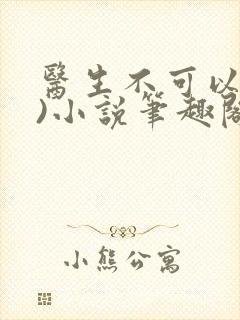 醫生不可以
)小說筆趣閣
小熊公寓